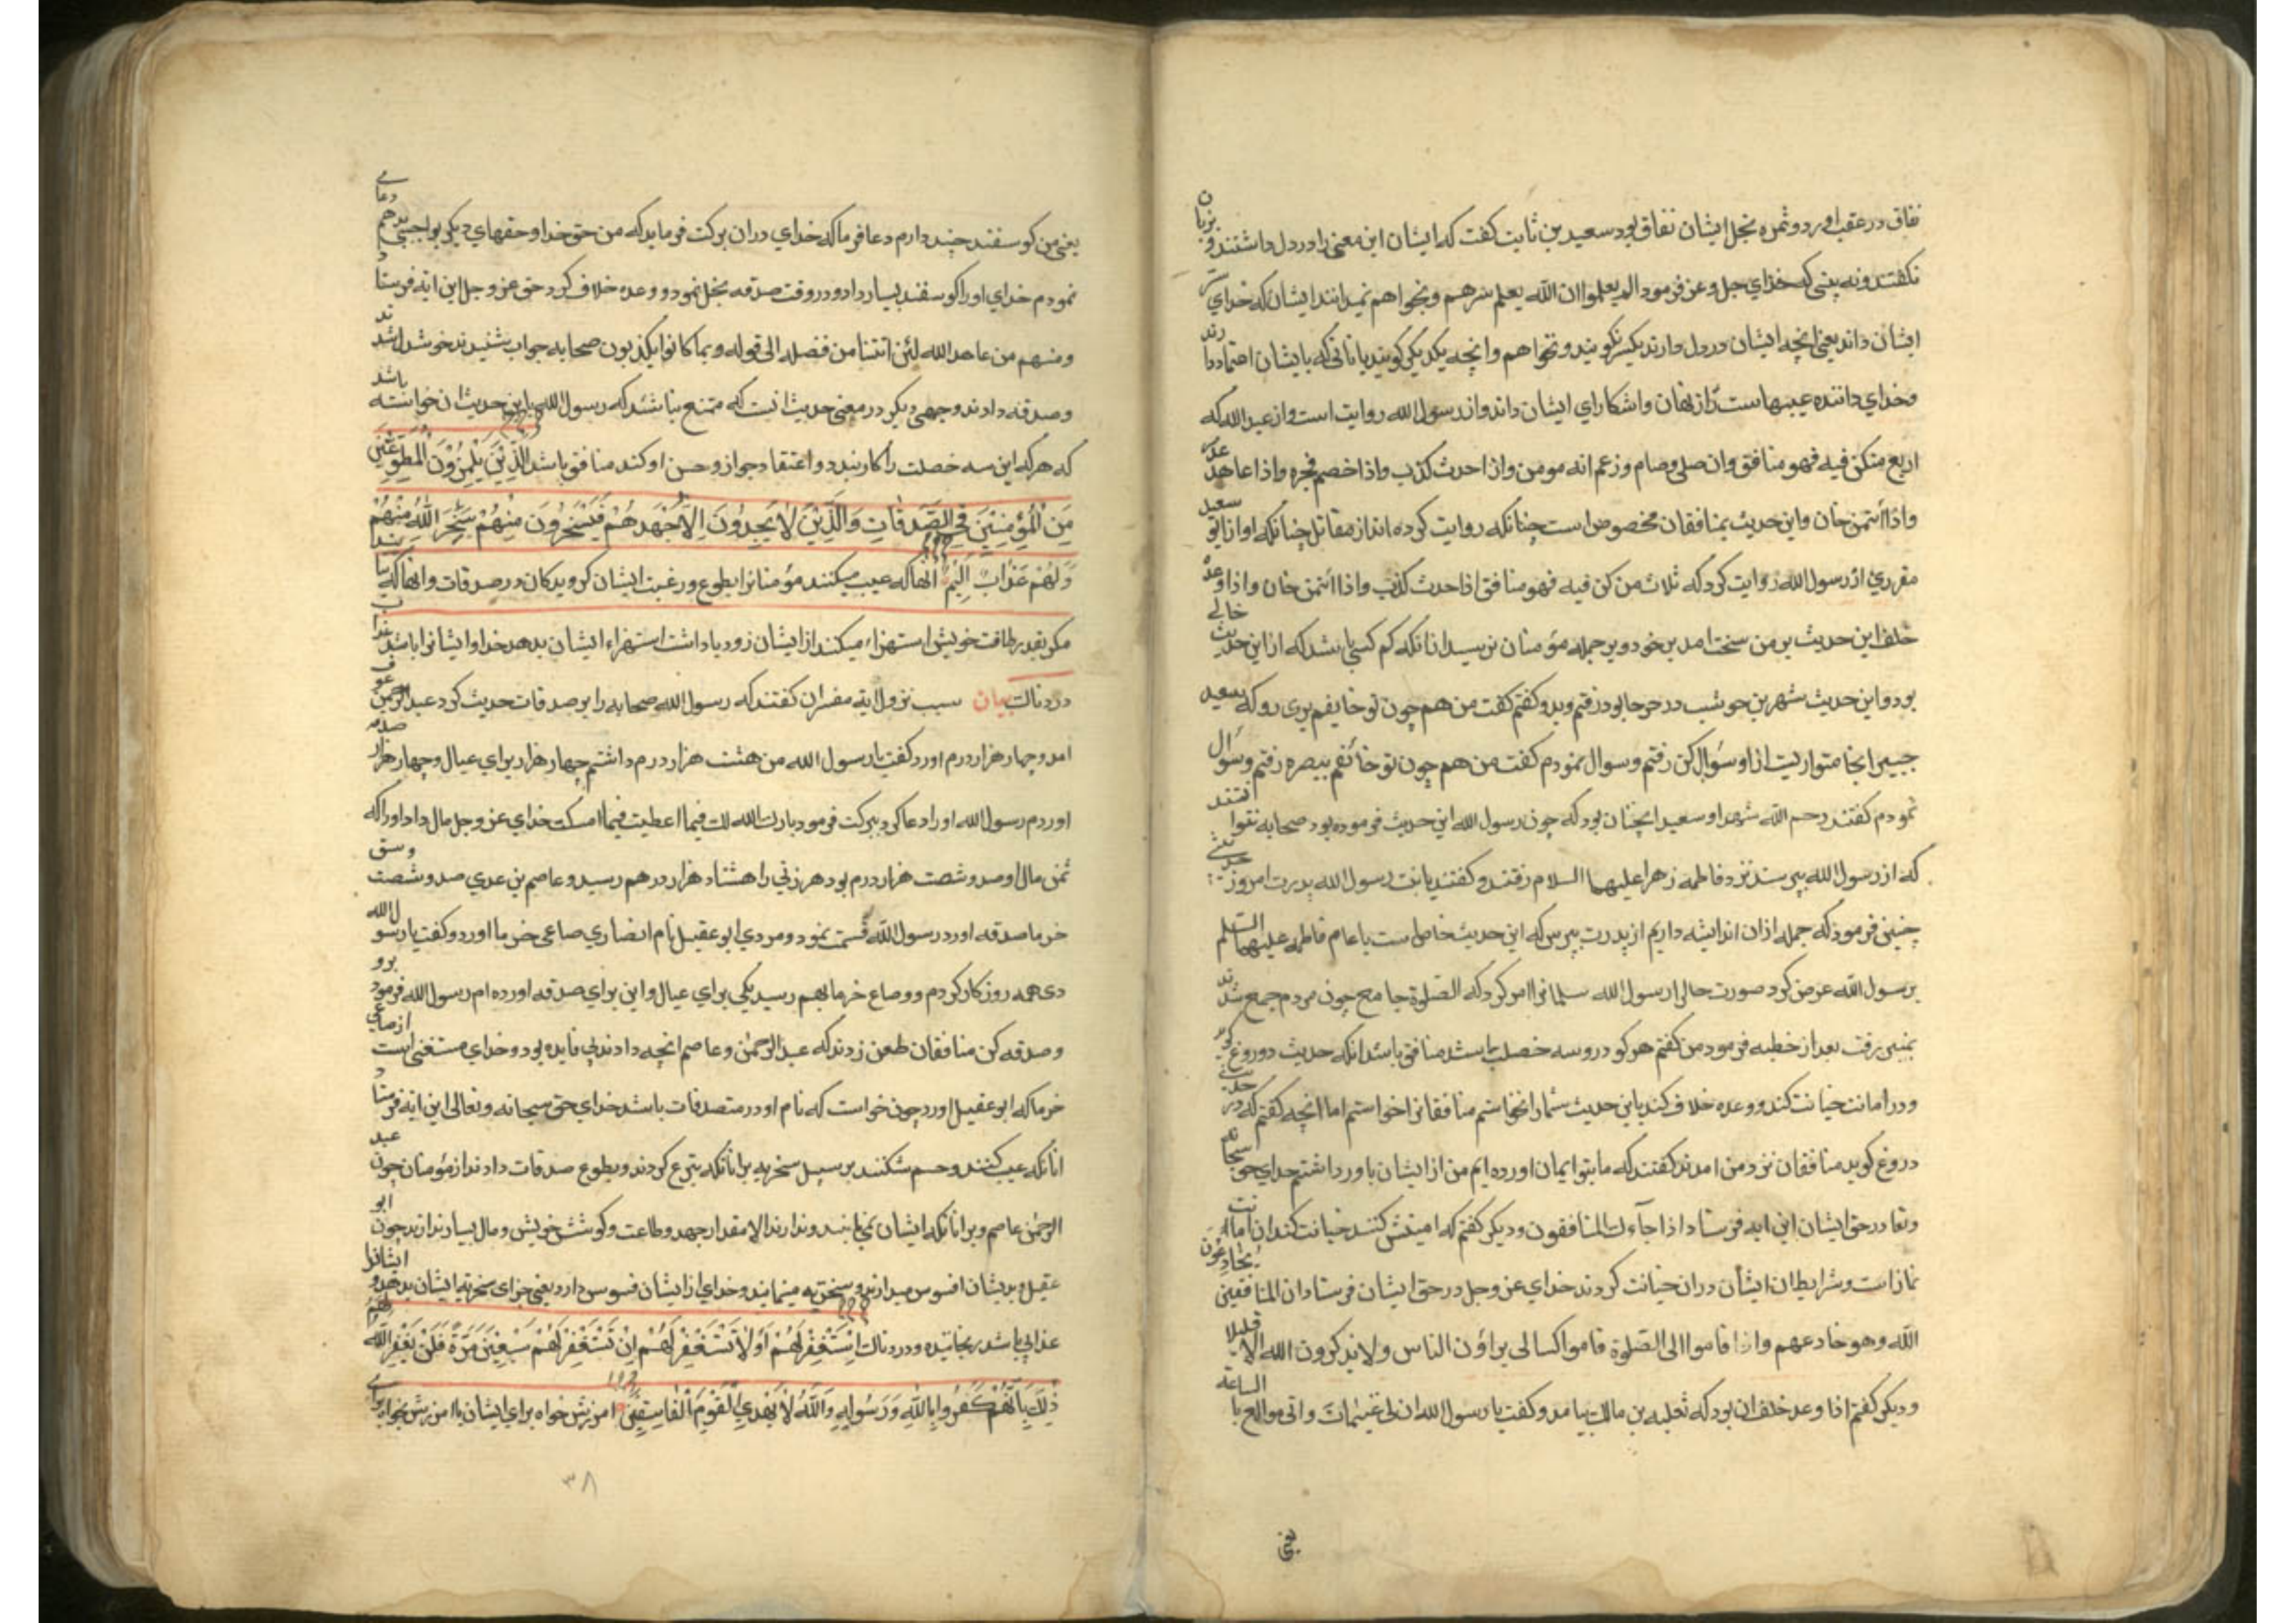 نفاق در عقب اورد و ثمره بخل ایشان نفاق بود سعید بن ثابت کفت که ایشان این معنی را در دل داشتند و بزبان
نکفتند و نه بینی که خدای جل و عز فرمود الم یعلموا ان الله یعلم سرهم و نجواهم نمیدانند ایشان که خدای سر
ایشان داند یعنی انچه ایشان در دل دارند بکس نکویند و نجواهم و انچه یکدیکر کویند با نانی که بایشان اعتماد دارند
و خدای داننده عیبهاست راز نهان و اشکارای ایشان داند و از رسول الله روایت است و از عبد الله که
اربع من کن فیه فهو منافق وان صلی و صام و زعم انه مومن و اذا حدث کذب و اذا خصم فجره و اذا عاهد غدر
و اذا ائتمن خان و این حدیث بمنافقان مخصوص است چنانکه روایت کرده اند از مقاتل چنانکه او از ابو سعید
مقرری از رسول الله روایت کرد که ثلاث من کن فیه فهو منافق اذا حدث کذب و اذا ائتمن خان و اذا وعد
خلف این حدیث بر من سخت امد بر خود و بر جمله مؤمنان ترسیدم از انکه کم کسی باشد که از این حدیث خالی
بود و این حدیث شهر بن حوشب در حرجا بود رفتم و بدو کفتم کفت من هم چون تو خایفم بری رو که سعید
جبیر انجا متواریست از او سؤال کن رفتم و سوال نمودم کفت من هم چون تو خائفم ببصره رفتم و سؤال
نمودم کفتند رحم الله شهرا و سعیدا چنان بود که چون رسول الله این حدیث فرموده بود صحابه نتوانستند
که از رسول الله بپرسند نزد فاطمه زهرا علیها السلام رفتند و کفتند یا بنت رسول الله پدرت امروز حدیثی
چنین فرمود که جمله ازان اندیشه داریم از پدرت بپرس که این حدیث خاص است یا عام فاطمه علیها السلام
بر رسول الله عرض کرد صورت حال رسول الله سلمانرا امر کرد که الصلوة جامع چون مردم جمع شدند
بمنبر رفت بعد از خطبه فرمود من کفتم هر کو در و سه خصلت باشد منافق باشد انکه حدیث دروغ کوید
و در امانت خیانت کند و وعده خلاف کند باین حدیث شما را نخواستم منافقانرا خواستم اما انچه کفتم که در حدیث
دروغ کوید منافقان نزد من امدند کفتند که ما بتو ایمان اورده ایم من از ایشان باور داشتم خدای حق سبحانه
و تعا در حق ایشان این ایه فرستاد اذا جاءك المنافقون و دیکر کفتم که امینش کنند خیانت کند ان امانت
نماز است و شرایط ان ایشان دران خیانت کردند خدای عز و جل در حق ایشان فرستاد ان المنافقین یخادعون
الله وهو خادعهم واذا قاموا الی الصلوة قاموا کسالی یراؤن الناس ولا یذکرون الله الا قلیلا
و دیکر کفتم اذا وعد خلف ان بود که ثعلبه بن مالك بیامد و کفت یا رسول الله ان لی غنیمات
یعنی
یعنی من کوسفند چند دارم دعا فرما که خدای دران برکت فرماید که من حق خدا و حقهای دیکر بواجبی بدهم دعای
نمودم خدای او را کوسفند بسیار داد و در وقت صدقه بخل نمود و وعده خلاف کرد حق عز و جل این ایه فرستاد
ومنهم من عاهد الله لئن اتتنا من فضله الی قوله وبما کانوا یکذبون صحابه جواب شنیدند خوشدل شدند
و صدقه دادند و جهی دیکر در معنی حدیث انست که ممتنع نباشد که رسول الله باین حدیث ان خواسته باشد
که هر که این سه خصلت را کار بندد و اعتقاد جواز و حسن او کند منافق باشد الَّذِیْنَ یَلْمِزُوْنَ الْمُطَّوِّعِیْنَ
مِنَ الْمُؤْمِنِیْنَ فِی الصَّدَقَاتِ وَالَّذِیْنَ لَا یَجِدُوْنَ اِلَّا جُهْدَهُمْ فَیَسْخَرُوْنَ مِنْهُمْ سَخِرَ اللّٰهُ مِنْهُمْ
وَلَهُمْ عَذَابٌ اَلِیْمٌ انها که عیب میکنند مؤمنانرا بطوع و رغبت ایشان کرویدکان در صدقات و انها که نیابند
مکر بقدر طاقت خویش استهزاء میکنند از ایشان زود پاداشت استهزاء ایشان بدهد خدا و ایشانرا باشد عذاب
دردناك بیان سبب نزول ایه مفسران کفتند که رسول الله صحابه را بر صدقات حدیث کرد عبد الرحمن عوف
امد و چهار هزار درم اورد کفت یا رسول الله من هشت هزار درم داشتم چهار هزار برای عیال و چهار هزار صدقه
اوردم رسول الله او را دعا کرد ببرکت فرمود بارك الله لك فیما اعطیت فیما امسکت خدای عز و جل مال داد او را که
ثمن مال او صد و شصت هزار درم بود هر زنی را هشتاد هزار درهم رسید و عاصم بن عدی صد و شصت وسق
خرما صدقه اورد رسول الله قسمت نمود و مردی ابو عقیل نام انصاری صاعی خرما اورد و کفت یا رسول الله
دی همه روز کار کردم و دو صاع خرما بهم رسید یکی برای عیال و این برای صدقه اورده ام رسول الله فرمود برو
و صدقه کن منافقان طعن زدند که عبد الرحمن و عاصم انچه دادند بی فایده بود و خدای مستغنی است از صاعی
خرما که ابو عقیل اورد چون خواست که نام او در متصدقات باشد خدای حق سبحانه و تعالی این ایه فرستاد
انانکه عیب کنند و حسم شکنند بر سبیل سخریه بر انانکه تبرع کردند و بطوع صدقات دادند از مؤمنان چون عبد
الرحمن عاصم و بر انانکه ایشان نمی یابند و ندارند الا مقدار جهد و طاعت و کوشش خویش و مال بسیار ندارند چون ابو
عقیل و بر یشان افسوس میدارند و سخریه مینمایند و خدای از ایشان فسوس دارد یعنی جزای سخریه ایشان بدهد و ایشانرا
عذابی باشد رنجاننده و دردناك اِسْتَغْفِرْ لَهُمْ اَوْ لَا تَسْتَغْفِرْ لَهُمْ اِنْ تَسْتَغْفِرْ لَهُمْ سَبْعِیْنَ مَرَّةً فَلَنْ یَغْفِرَ اللّٰهُ لَهُمْ
ذٰلِكَ بِاَنَّهُمْ كَفَرُوا بِاللّٰهِ وَرَسُولِهِ وَاللّٰهُ لَا یَهْدِی الْقَوْمَ الْفَاسِقِیْنَ امرزش خواه برای ایشان یا امرزش نخواه برای
۳۸